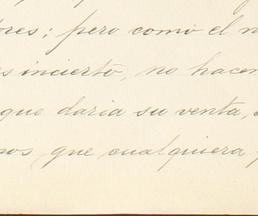 ores; pero como el n
es incierto, no hacen
que daria su venta,
nos que cualquiera